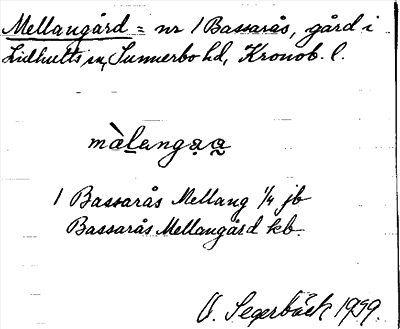 Mellangård = nr 1 Bassarås, gård i
Lidhults sn, Sunnerbo hd, Kronob. l.
màlanga̤a̤
1 Bassarås Mellang 1/4 jb
Bassarås Mellangård kb.
O. Segerbäck 1959.